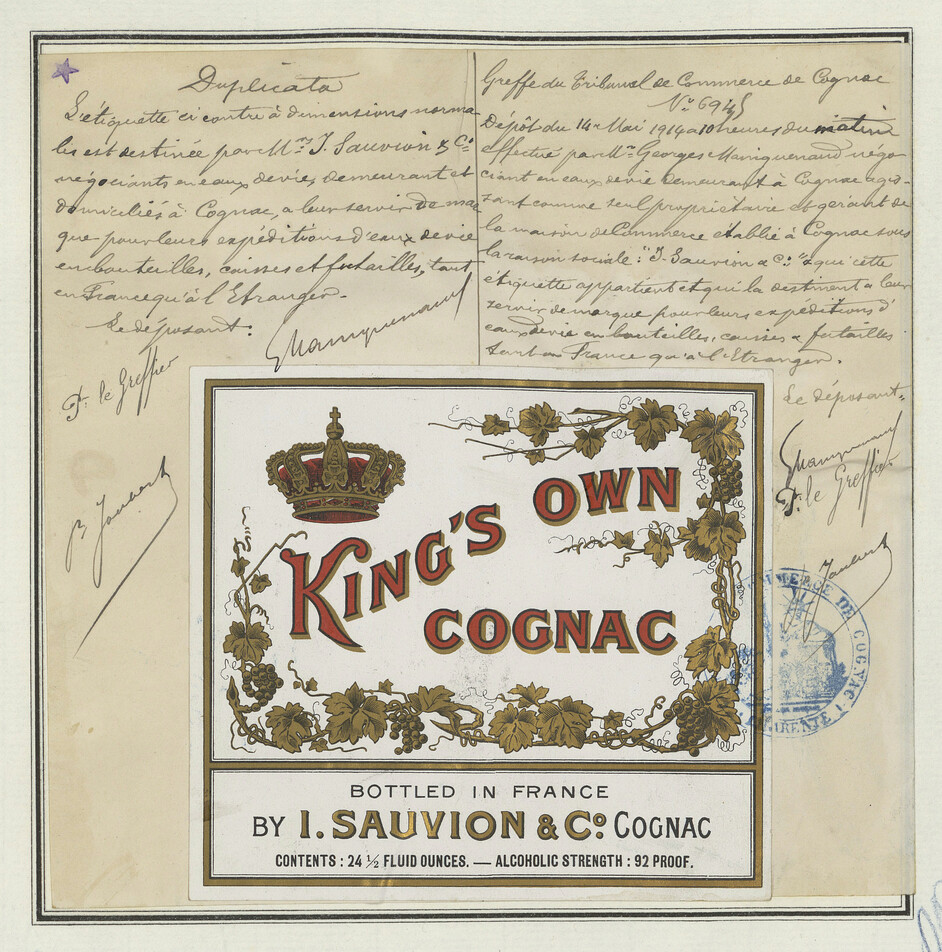 Duplicata
L'étiquette ci contre à dimensions norma
les est destinée par Mrs J. Sauvion & Co
négociants en eaux de vie, demeurant et
domiciliés à Cognac, a leur servir de mar
que pour leurs expéditions d'eaux de vie
en bouteilles, caisses et futailles, tant
en France qu'à l'Etranger.
Le déposant:
GManiquenaud
Pr. le Greffier
Greffe du Tribunal de Commerce de Cognac
No 6945
Dépôt du 14 Mai 1914 a 10 heures du matin
effectué par Mr Georges Maniquenaud négo
ciant en eaux de vie demeurant à Cognac agis-
sant comme seul propriétaire et gérant de
la maison de Commerce établie à Cognac sous
la raison sociale: "J. Sauvion & Co" à qui cette
étiquette appartient et qui la destinent a leur
servir de marque pour leurs expéditions d'
eaux de vie en bouteilles, caisses & futailles
tant en France qu'à l'Etranger.
Le déposant.
GManiquenaud
Pr. le Greffier
KING'S OWN
COGNAC
BOTTLED IN FRANCE
BY I. SAUVION & Co COGNAC
CONTENTS: 24 1/2 FLUID OUNCES. — ALCOHOLIC STRENGTH: 92 PROOF.
COMMERCE DE COGNAC
CHARENTE